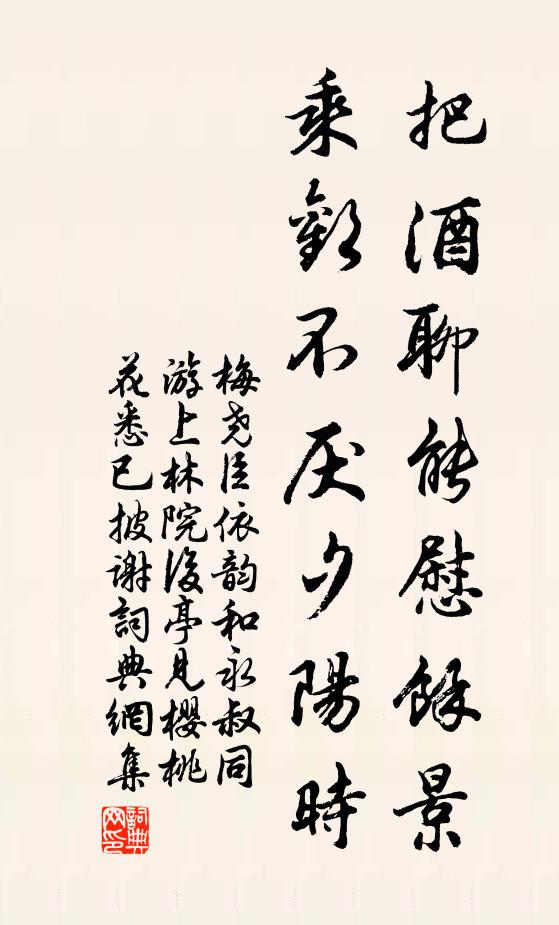 把酒聊能慰餘景
乘歡不厌夕陽時
梅尧臣依韵和永叔同
游上林院後亭見櫻桃
花悉已披謝詞典網集
詞典
网印